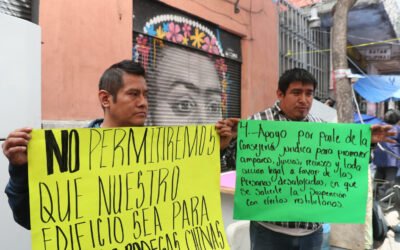 NO PERMITIREMOS
QUE NUESTRO
EDIFICIO SEA PARA
BODEGAS CHINAS
4.- Apoyo por parte de la
Consejería
jurídica para promover
amparos, juicios, recursos y toda
acción legal a favor de las
Personas desalojadas, en que
se solicite la suspensión
con efectos restitutorios.